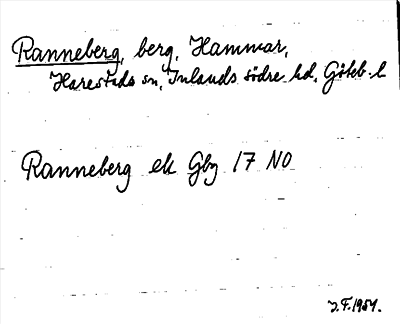 Ranneberg, berg, Hammar,
Harestads sn, Inlands södre hd, Göteb. l
Ranneberg ek Gbg 17 NO
J.F. 1954.